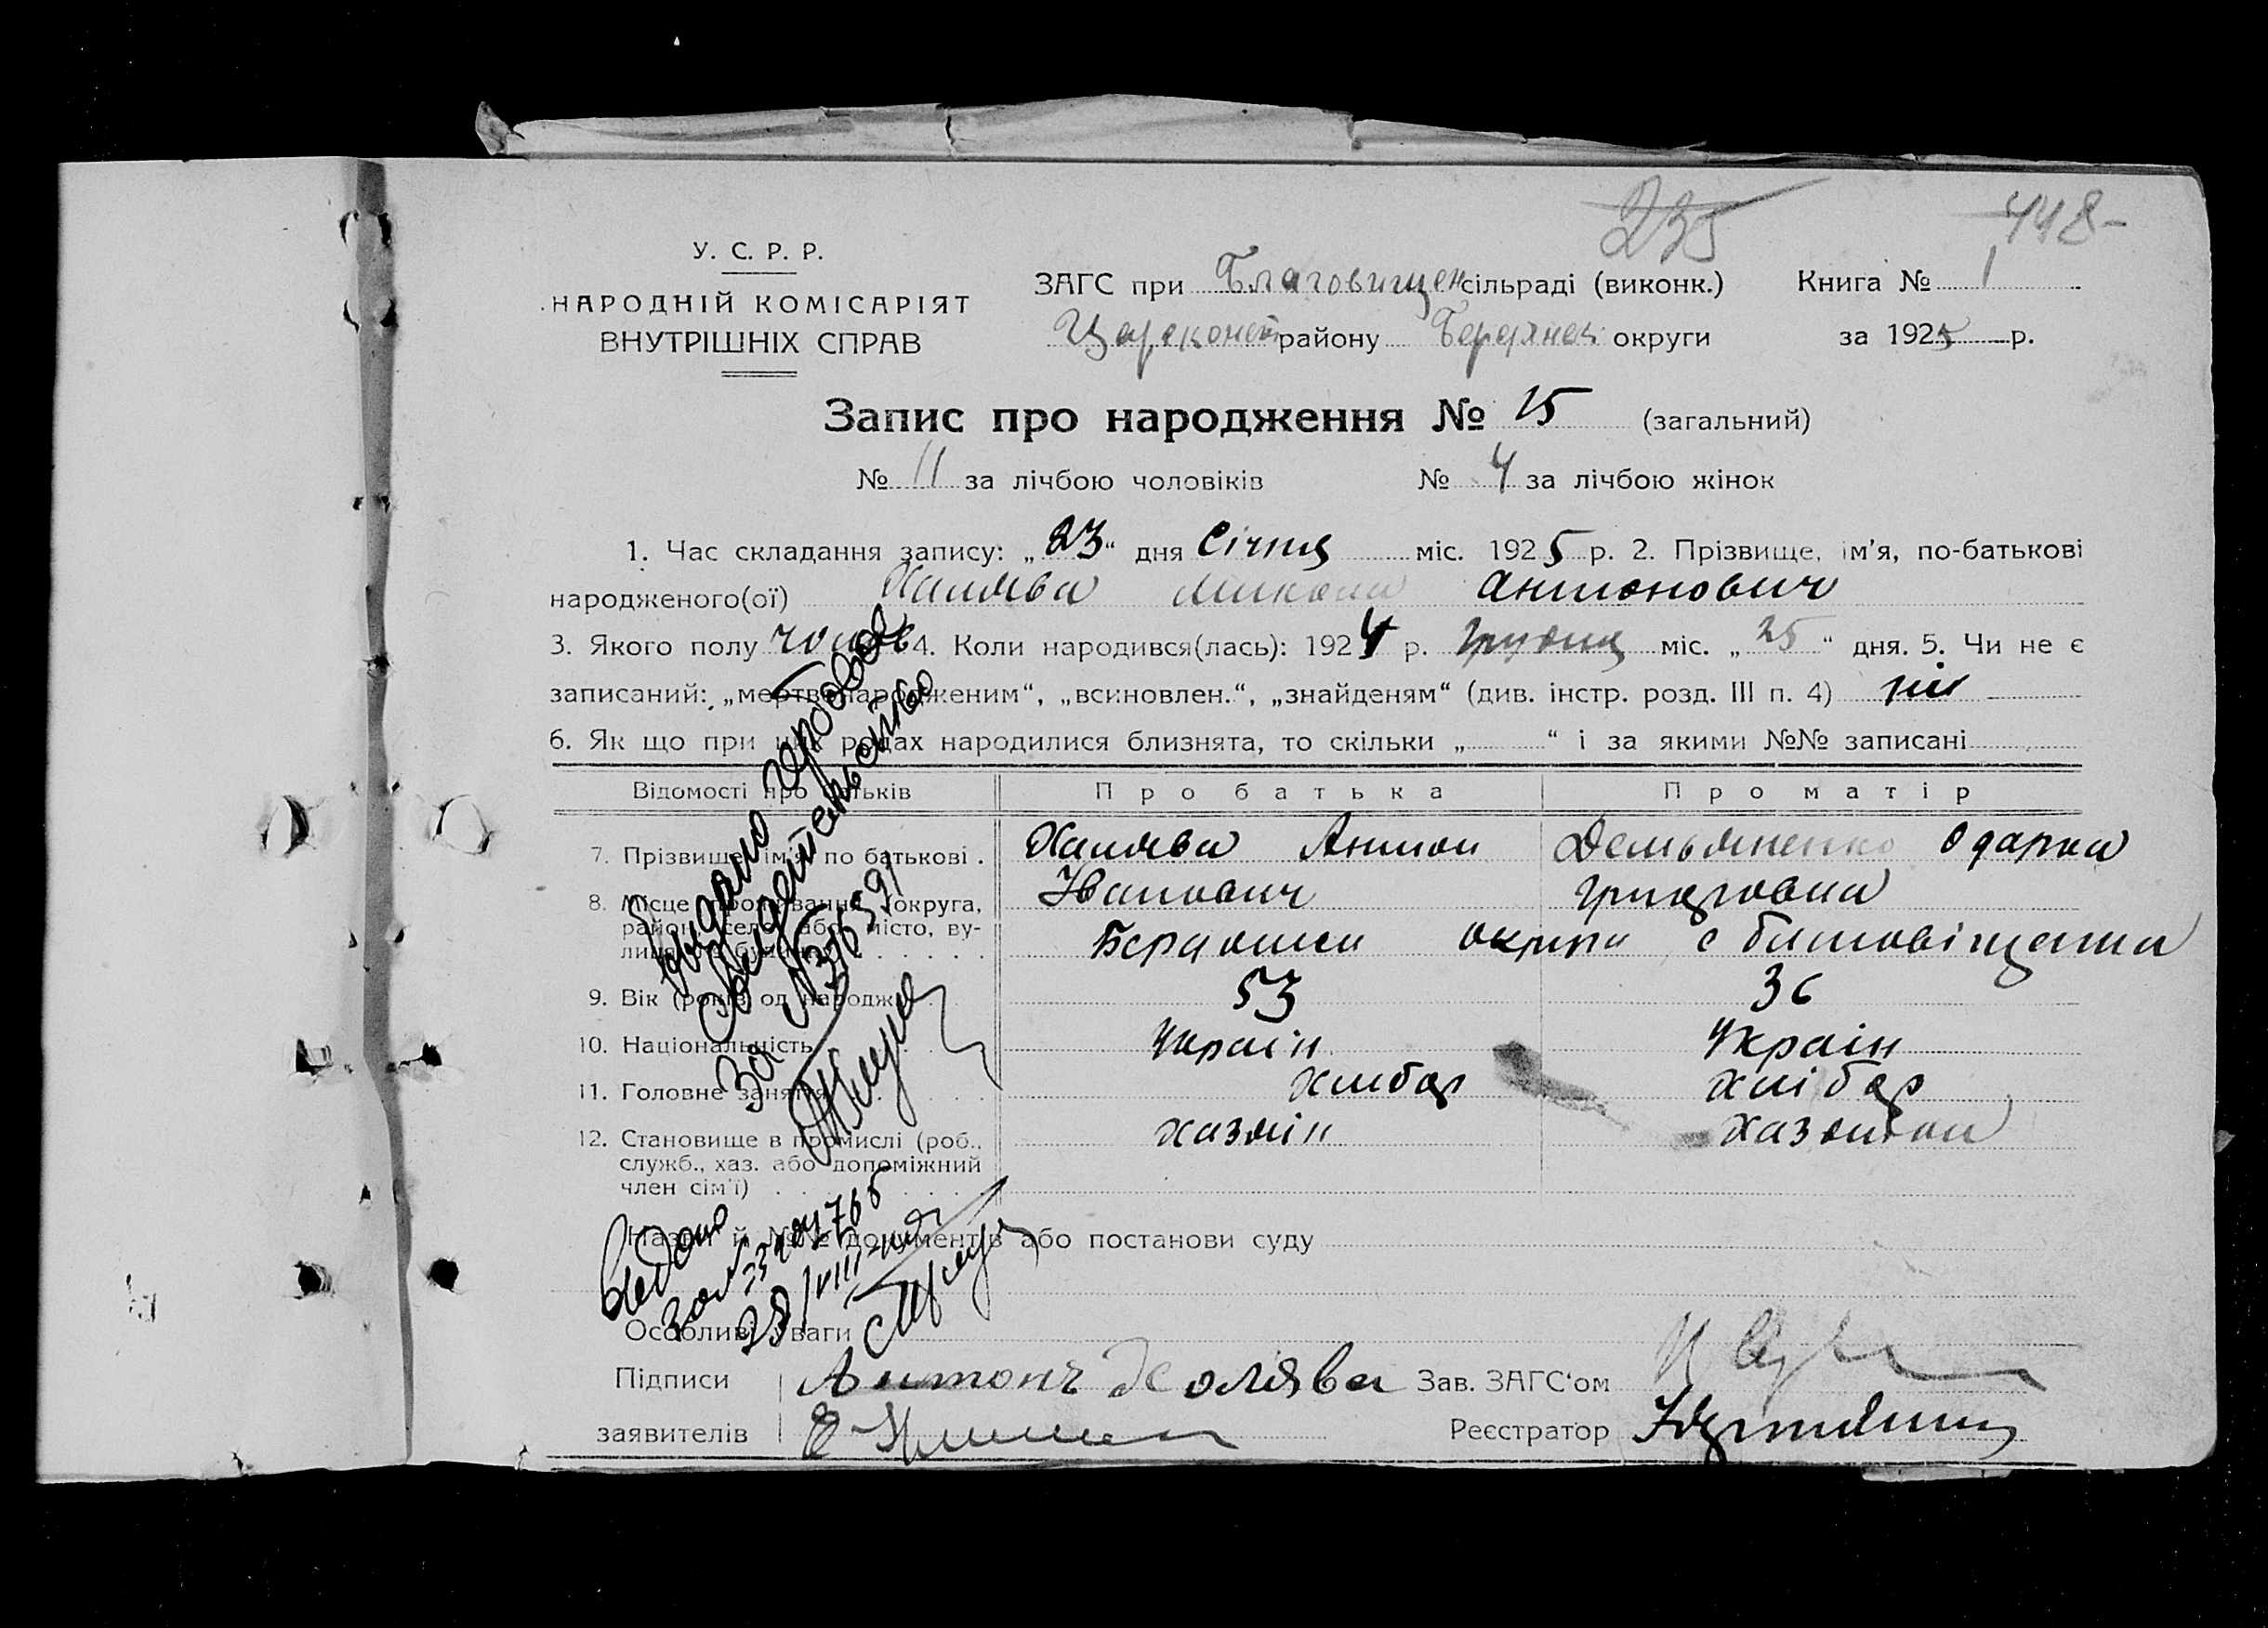 235
448-
У. С. Р. Р.
НАРОДНІЙ КОМІСАРІЯТ
ВНУТРІШНІХ СПРАВ
ЗАГС при Благовищен сільраді (виконк.) Книга № 1
району округи за 1925 р.
Запис про народження № 15 (загальний)
№ 11 за лічбою чоловіків № 4 за лічбою жінок
1. Час складання запису: „23“ дня Січня міс. 1925 р. 2. Прізвище, ім’я, по-батькові
народженого(ої) Халява Микола Антонович
3. Якого полу 4. Коли народився(лась): 1924 р. Грудня міс. „25“ дня. 5. Чи не є
записаний: „мертвонародженим“, „всиновлен.“, „знайденям“ (див. інстр. розд. III п. 4) ні
6. Як що при цих родах народилися близнята, то скільки „ “ і за якими №№ записані
Відомості про батьків Про батька Про матір
7. Прізвище, ім’я, по батькові . Халява Антон Демьяненко Одарка
Іванович
8. Місце округа,
район, село або місто, ву-
округи с
9. Вік (років од народж. 53 36
10. Національність Україн Україн
11. Головне заняття Хлибор Хлібор
12. Становище в промислі (роб., хазяін
служб., хаз. або допоміжний
член сім’ї)
Назви й №№ документів або постанови суду
Особливі уваги
Підписи Антонъ Холява Зав. ЗАГС‘ом
заявителів Реєстратор
Видано гербовое
Свидетельство
За №
Видано
28/VIII